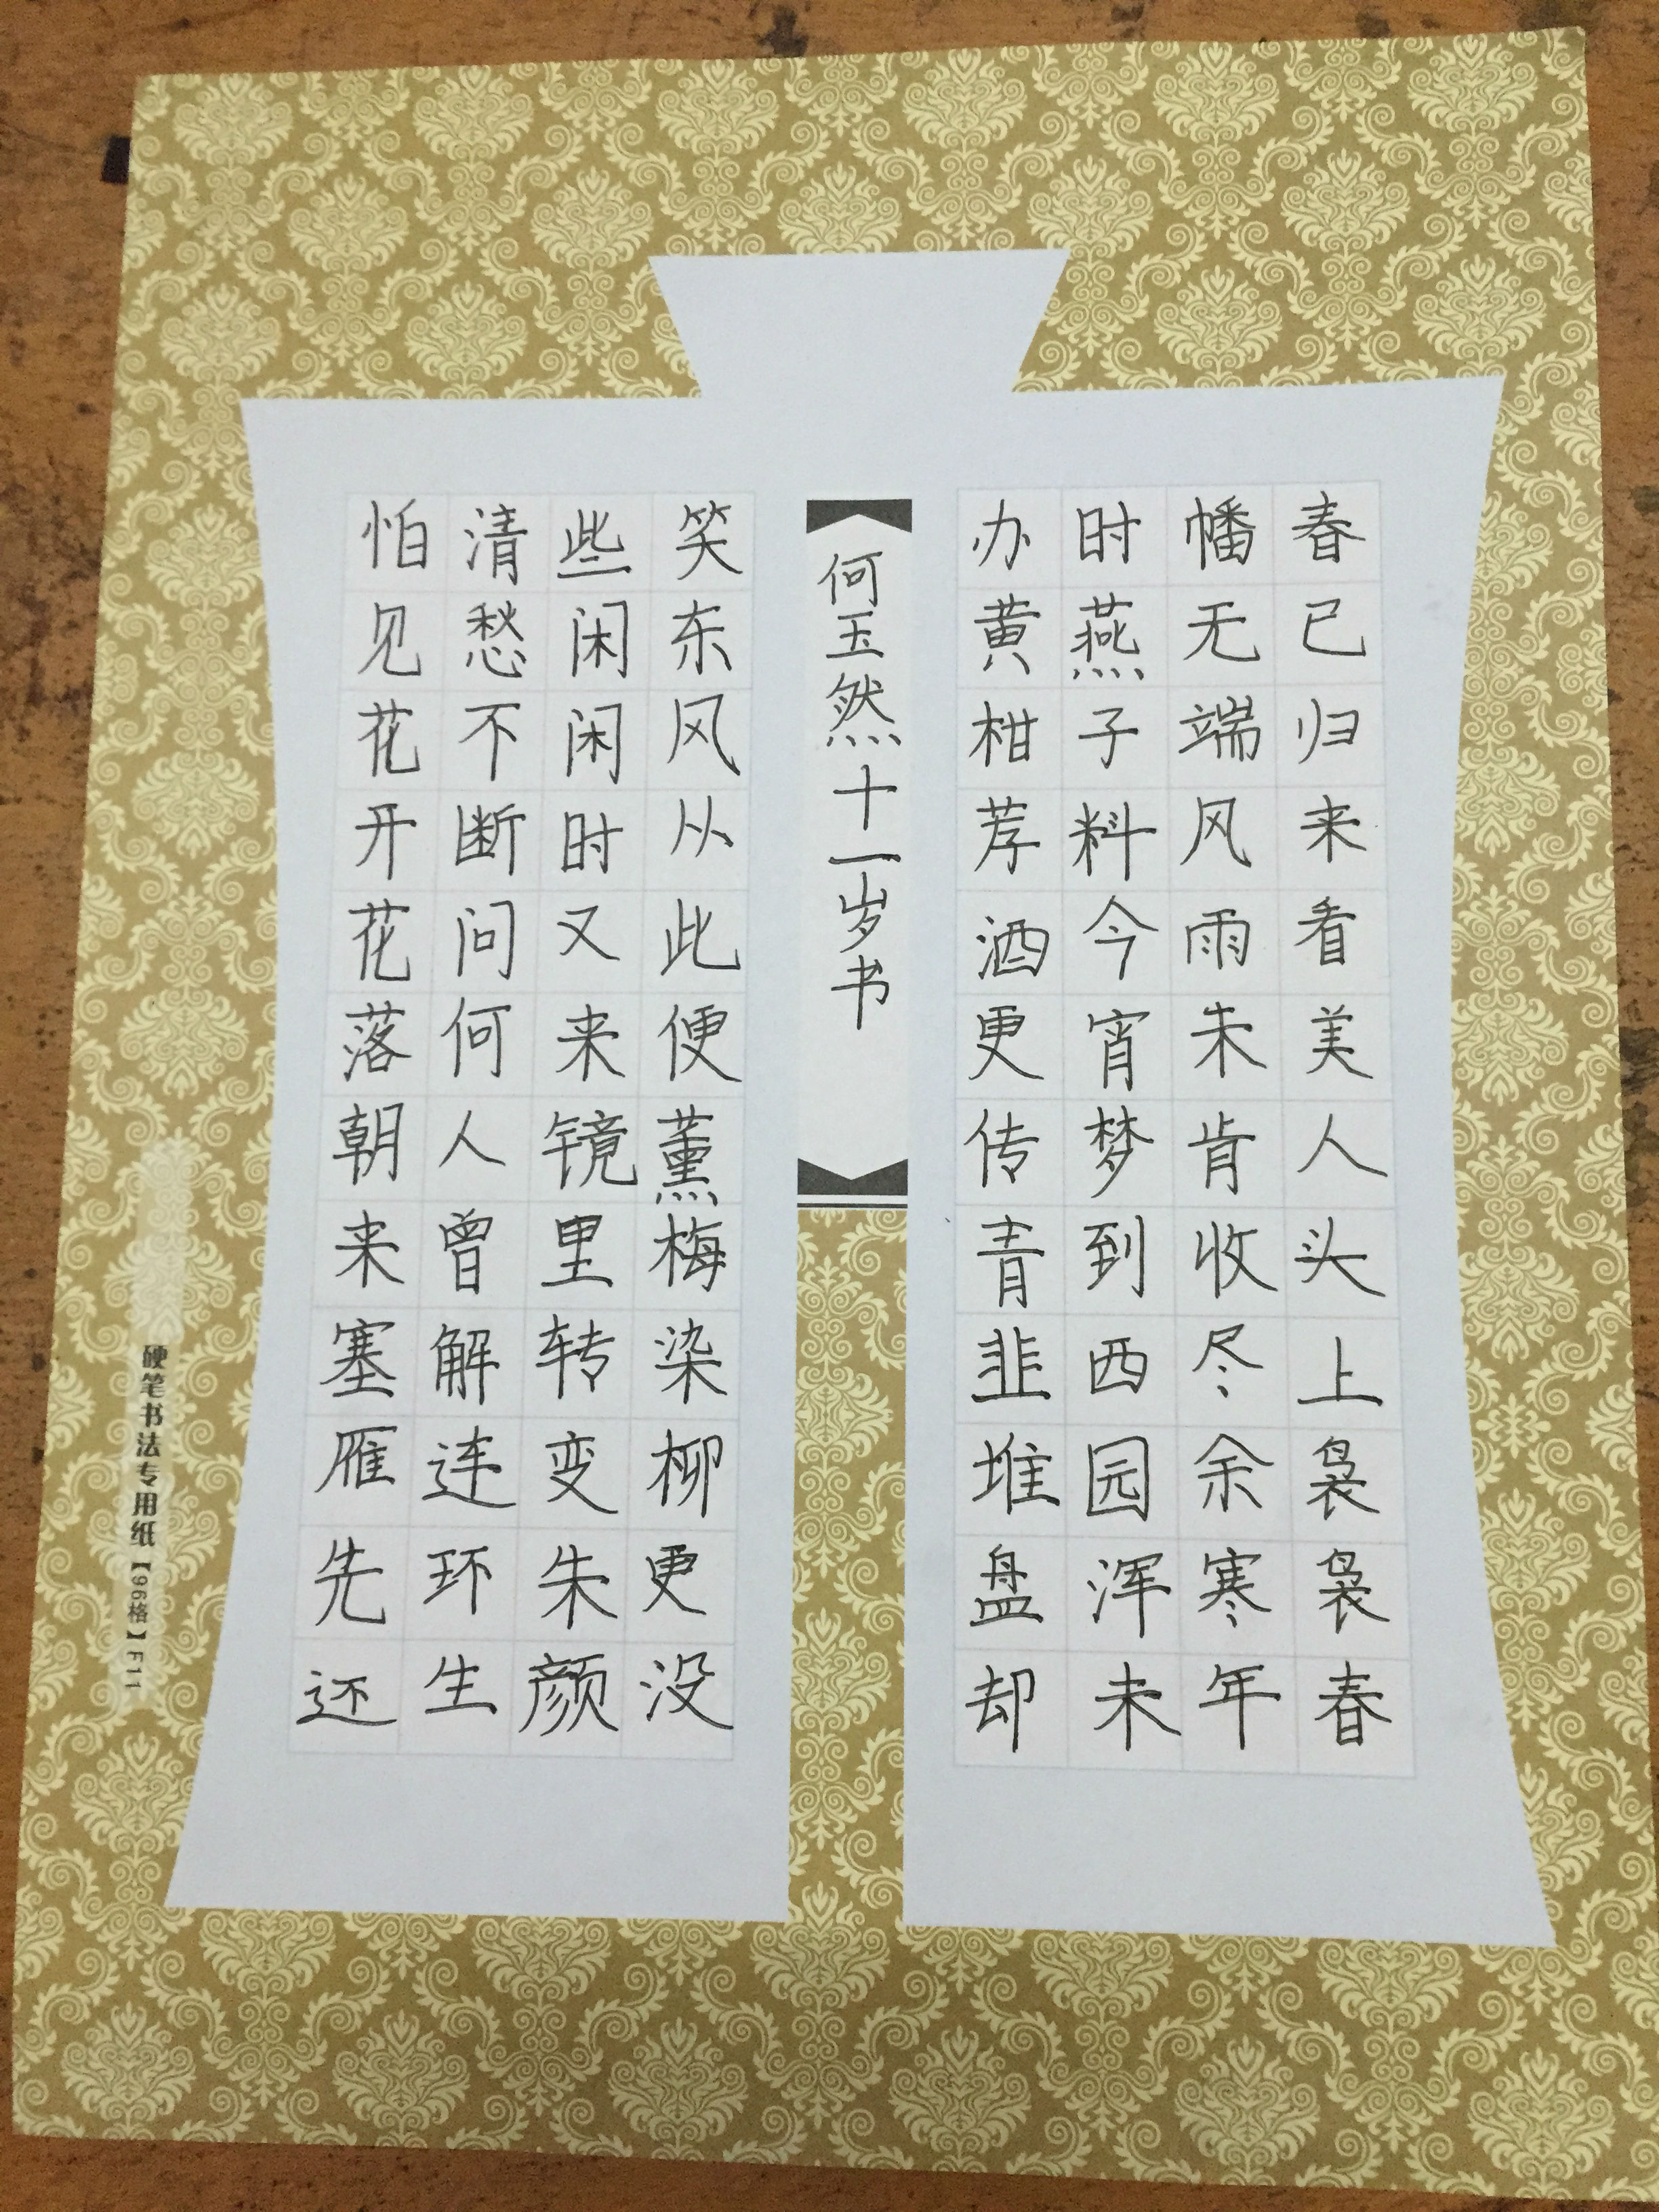 春已归来看美人头上袅袅春
幡无端风雨未肯收尽余寒年
时燕子料今宵梦到西园浑未
办黄柑荐酒更传青韭堆盘却
何玉然十一岁书
笑东风从此便薰梅染柳更没
些闲闲时又来镜里转变朱颜
清愁不断问何人曾解连环生
怕见花开花落朝来塞雁先还
硬笔书法专用纸【96格】F11